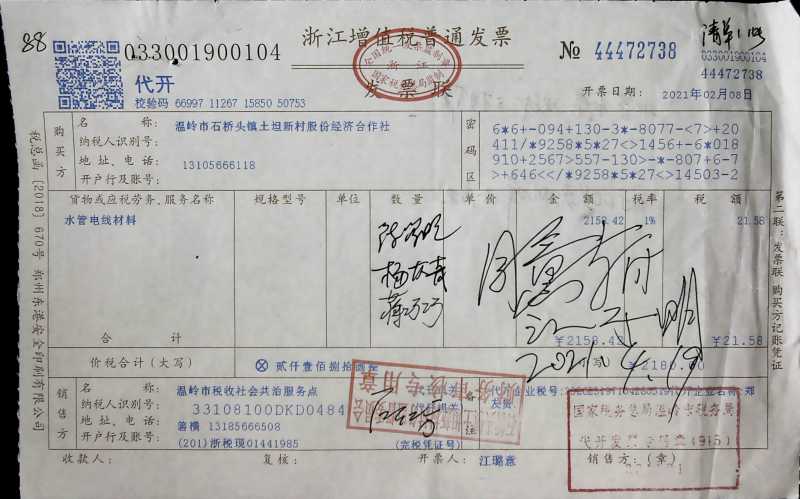 88
033001900104
浙江增值税普通发票
发票联
№ 44472738
清单1
033001900104
44472738
代开
校验码 66997 11267 15850 50753
开票日期: 2021年02月08日
税总函〔2018〕670号 郑州东港安全印刷有限公司
购买方
名称: 温岭市石桥头镇土坦新村股份经济合作社
纳税人识别号:
地址、电话: 13105666118
开户行及账号:
密码区
6*6+-094+130-3*-8077-<7>+20
411/*9258*5*27<>1456+-6*018
910+2567>557-130>-*-807+6-7
>+646<</*9258*5*27<>14503-2
货物或应税劳务、服务名称 规格型号 单位 数量 单价 金额 税率 税额
水管电线材料 2158.42 1% 21.58
合计 ¥2158.42 ¥21.58
价税合计(大写) 贰仟壹佰捌拾圆整 ¥2180.00
2021.4.19
第二联:发票联 购买方记账凭证
销售方
名称: 温岭市税收社会共治服务点
纳税人识别号: 33108100DKD0484
地址、电话: 箬横 13185666508
开户行及账号: (201)浙税现01441985
备注
(完税证号)
国家税务总局温岭市税务局
代开发票专用章
收款人: 复核: 开票人: 江璐意 销售方:(章)